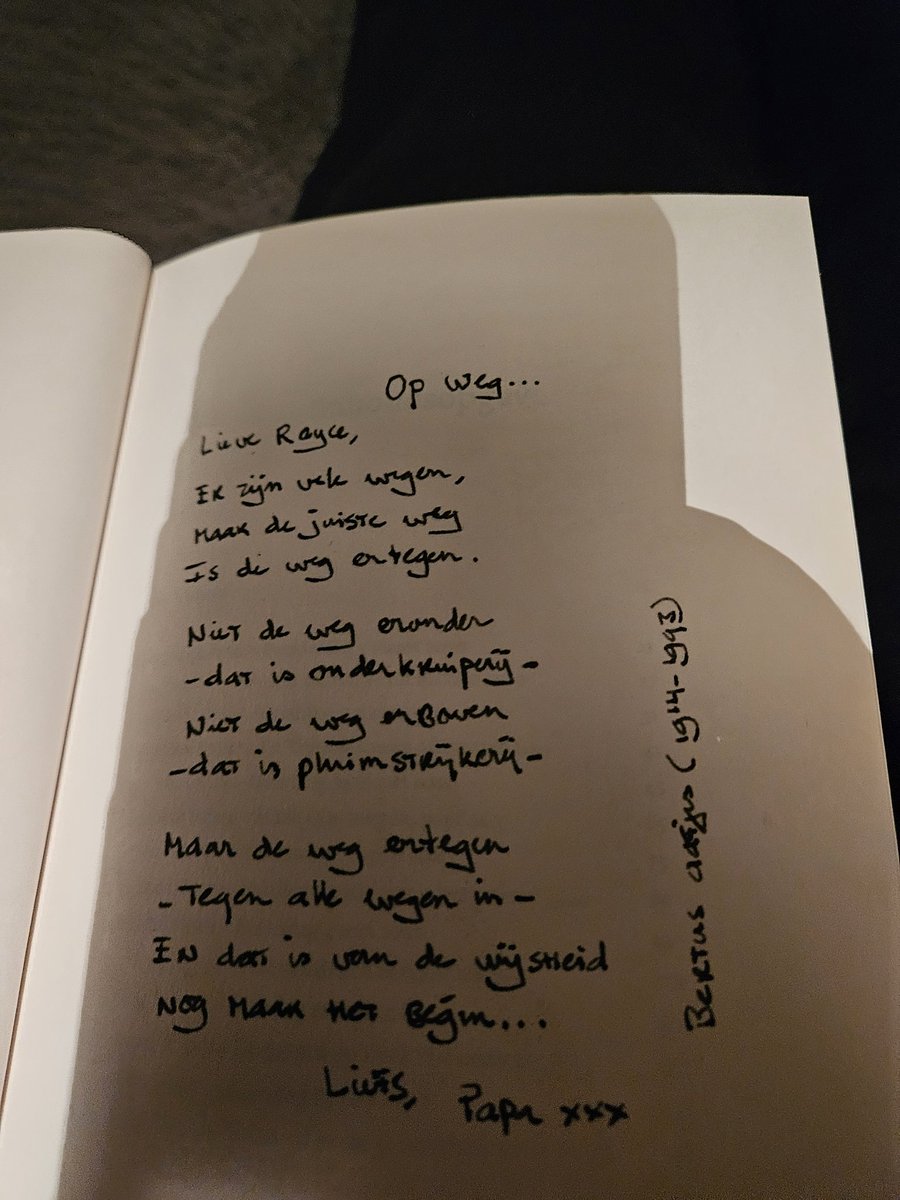 Op weg...
Lieve Rayce,
Er zijn vele wegen,
Maar de juiste weg
Is de weg ertegen.
Niet de weg eronder
-dat is onderkruiperij-
Niet de weg erboven
-dat is pluimstrijkerij-
Maar de weg ertegen
-Tegen alle wegen in-
En dat is van de wijsheid
Nog maar het begin...
Liefs, Papa xxx
Bertus Aafjes (1914-1993)